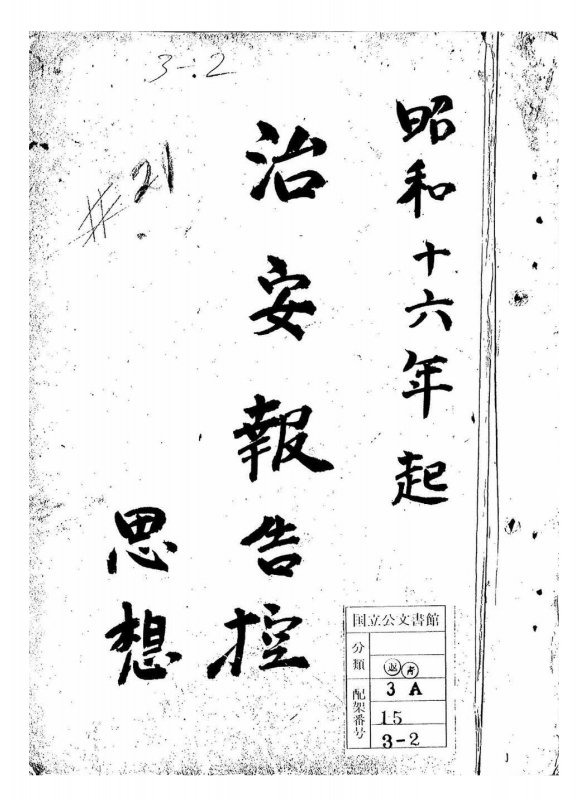 3-2
#21
昭和十六年起
治安報告控
思想
国立公文書館
分類
返
青
配架番号
3 A
15
3-2